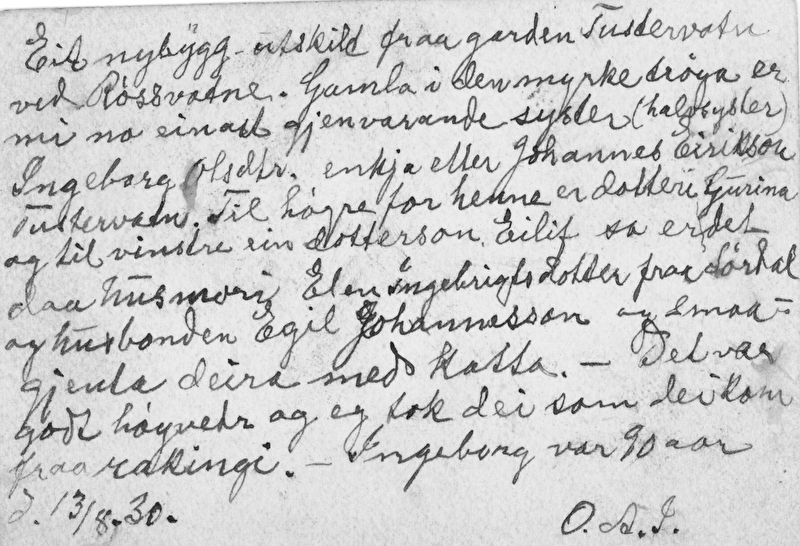 Eit nybygg utskild fraa garden Tustervatn
ved Røssvatne. Gamla i den myrke trøya er
mi no einast gjenvarande syster (halvsyster)
Ingeborg Olsdtr. enkja etter Johannes Eirikson
Tustervatn. Til høgre for henne er dotteri Gurina
og til vinstre ein dotterson, Eilif so er det
daa husmori Elen Ingebrigtsdotter fraa Sørdal
og husbonden Egil Johannesson og smaa-
gjenta deira med katta. — Det var
godt høyvedr og eg tok dei som dei kom
fraa rakingi. — Ingeborg var 90 aar
d. 13/8-30.
O. A. I.